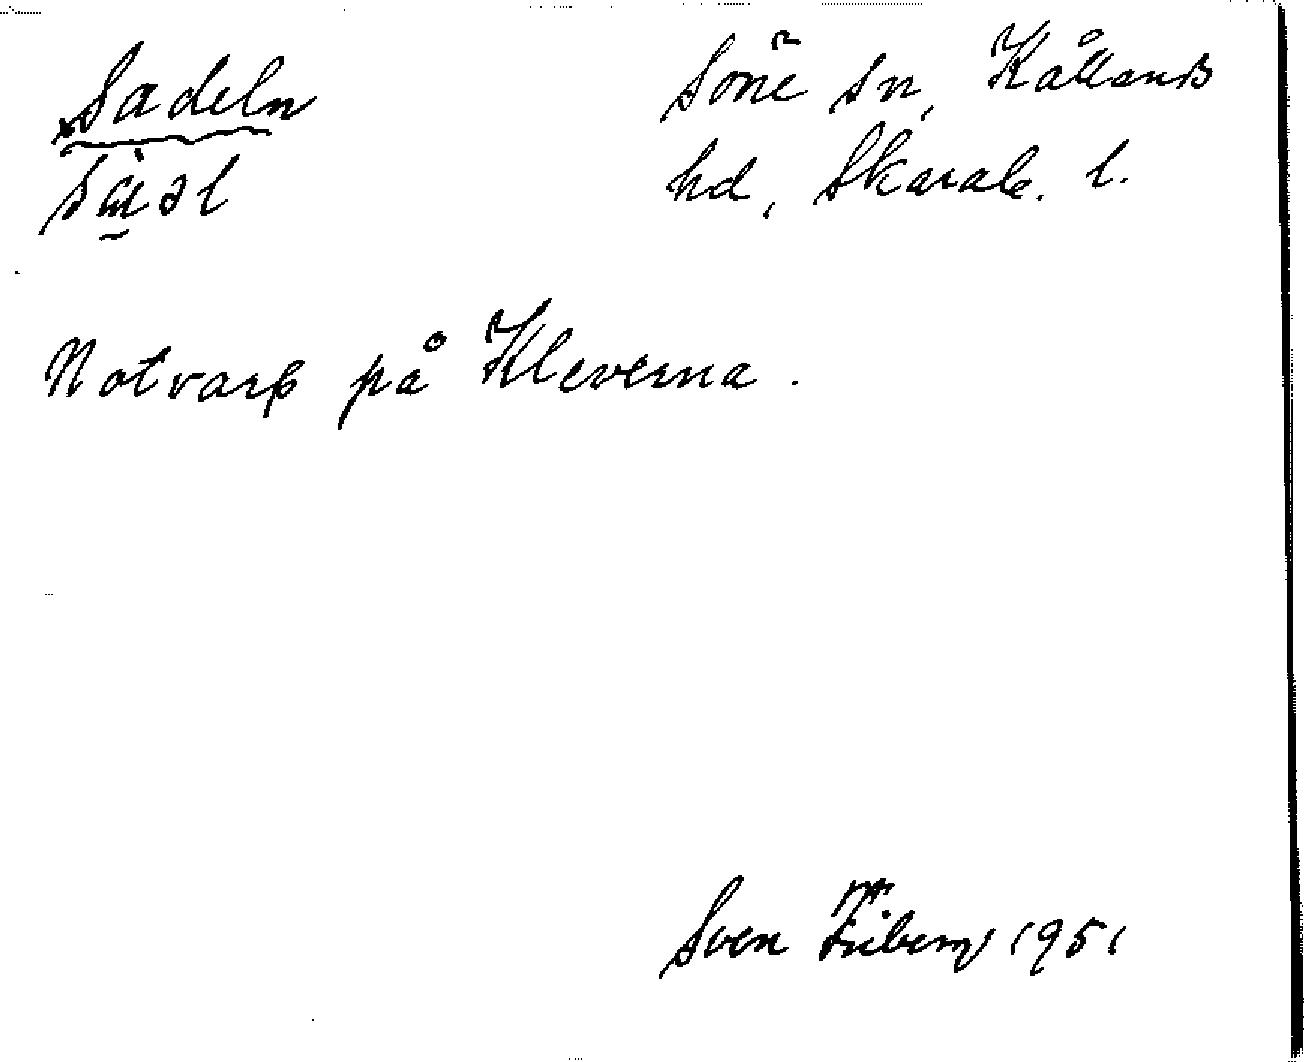 Sadeln
Söne sn, Kållands
hd, Skarab. l.
Notvarp på Kleverna.
Sven Friberg 1951